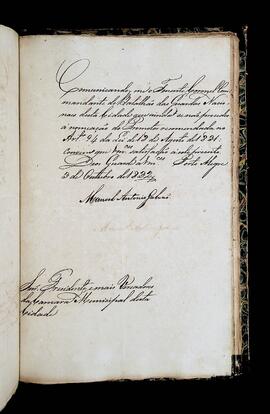 Communicando-me o Tenente Coronel Com-
mandante do Batalhão das Guardas Nacio-
naes desta Cidade que ainda se não procedeo
a nomeação do Promotor recommendada no
Art.º 94 da Lei de 18 de Agosto de 1831.
que Vm.ces satisfação a este preceito.
Deos Guarde a Vm.ces Porto Alegre
3 de Outubro de 1832
Manoel Antonio Galvão
Snr.s Presidente, e mais Vereadores
da Camara Municipal desta
Cidade